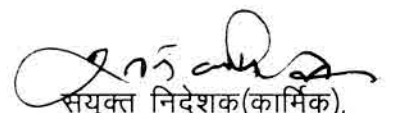 संयुक्त निदेशक(कार्मिक),